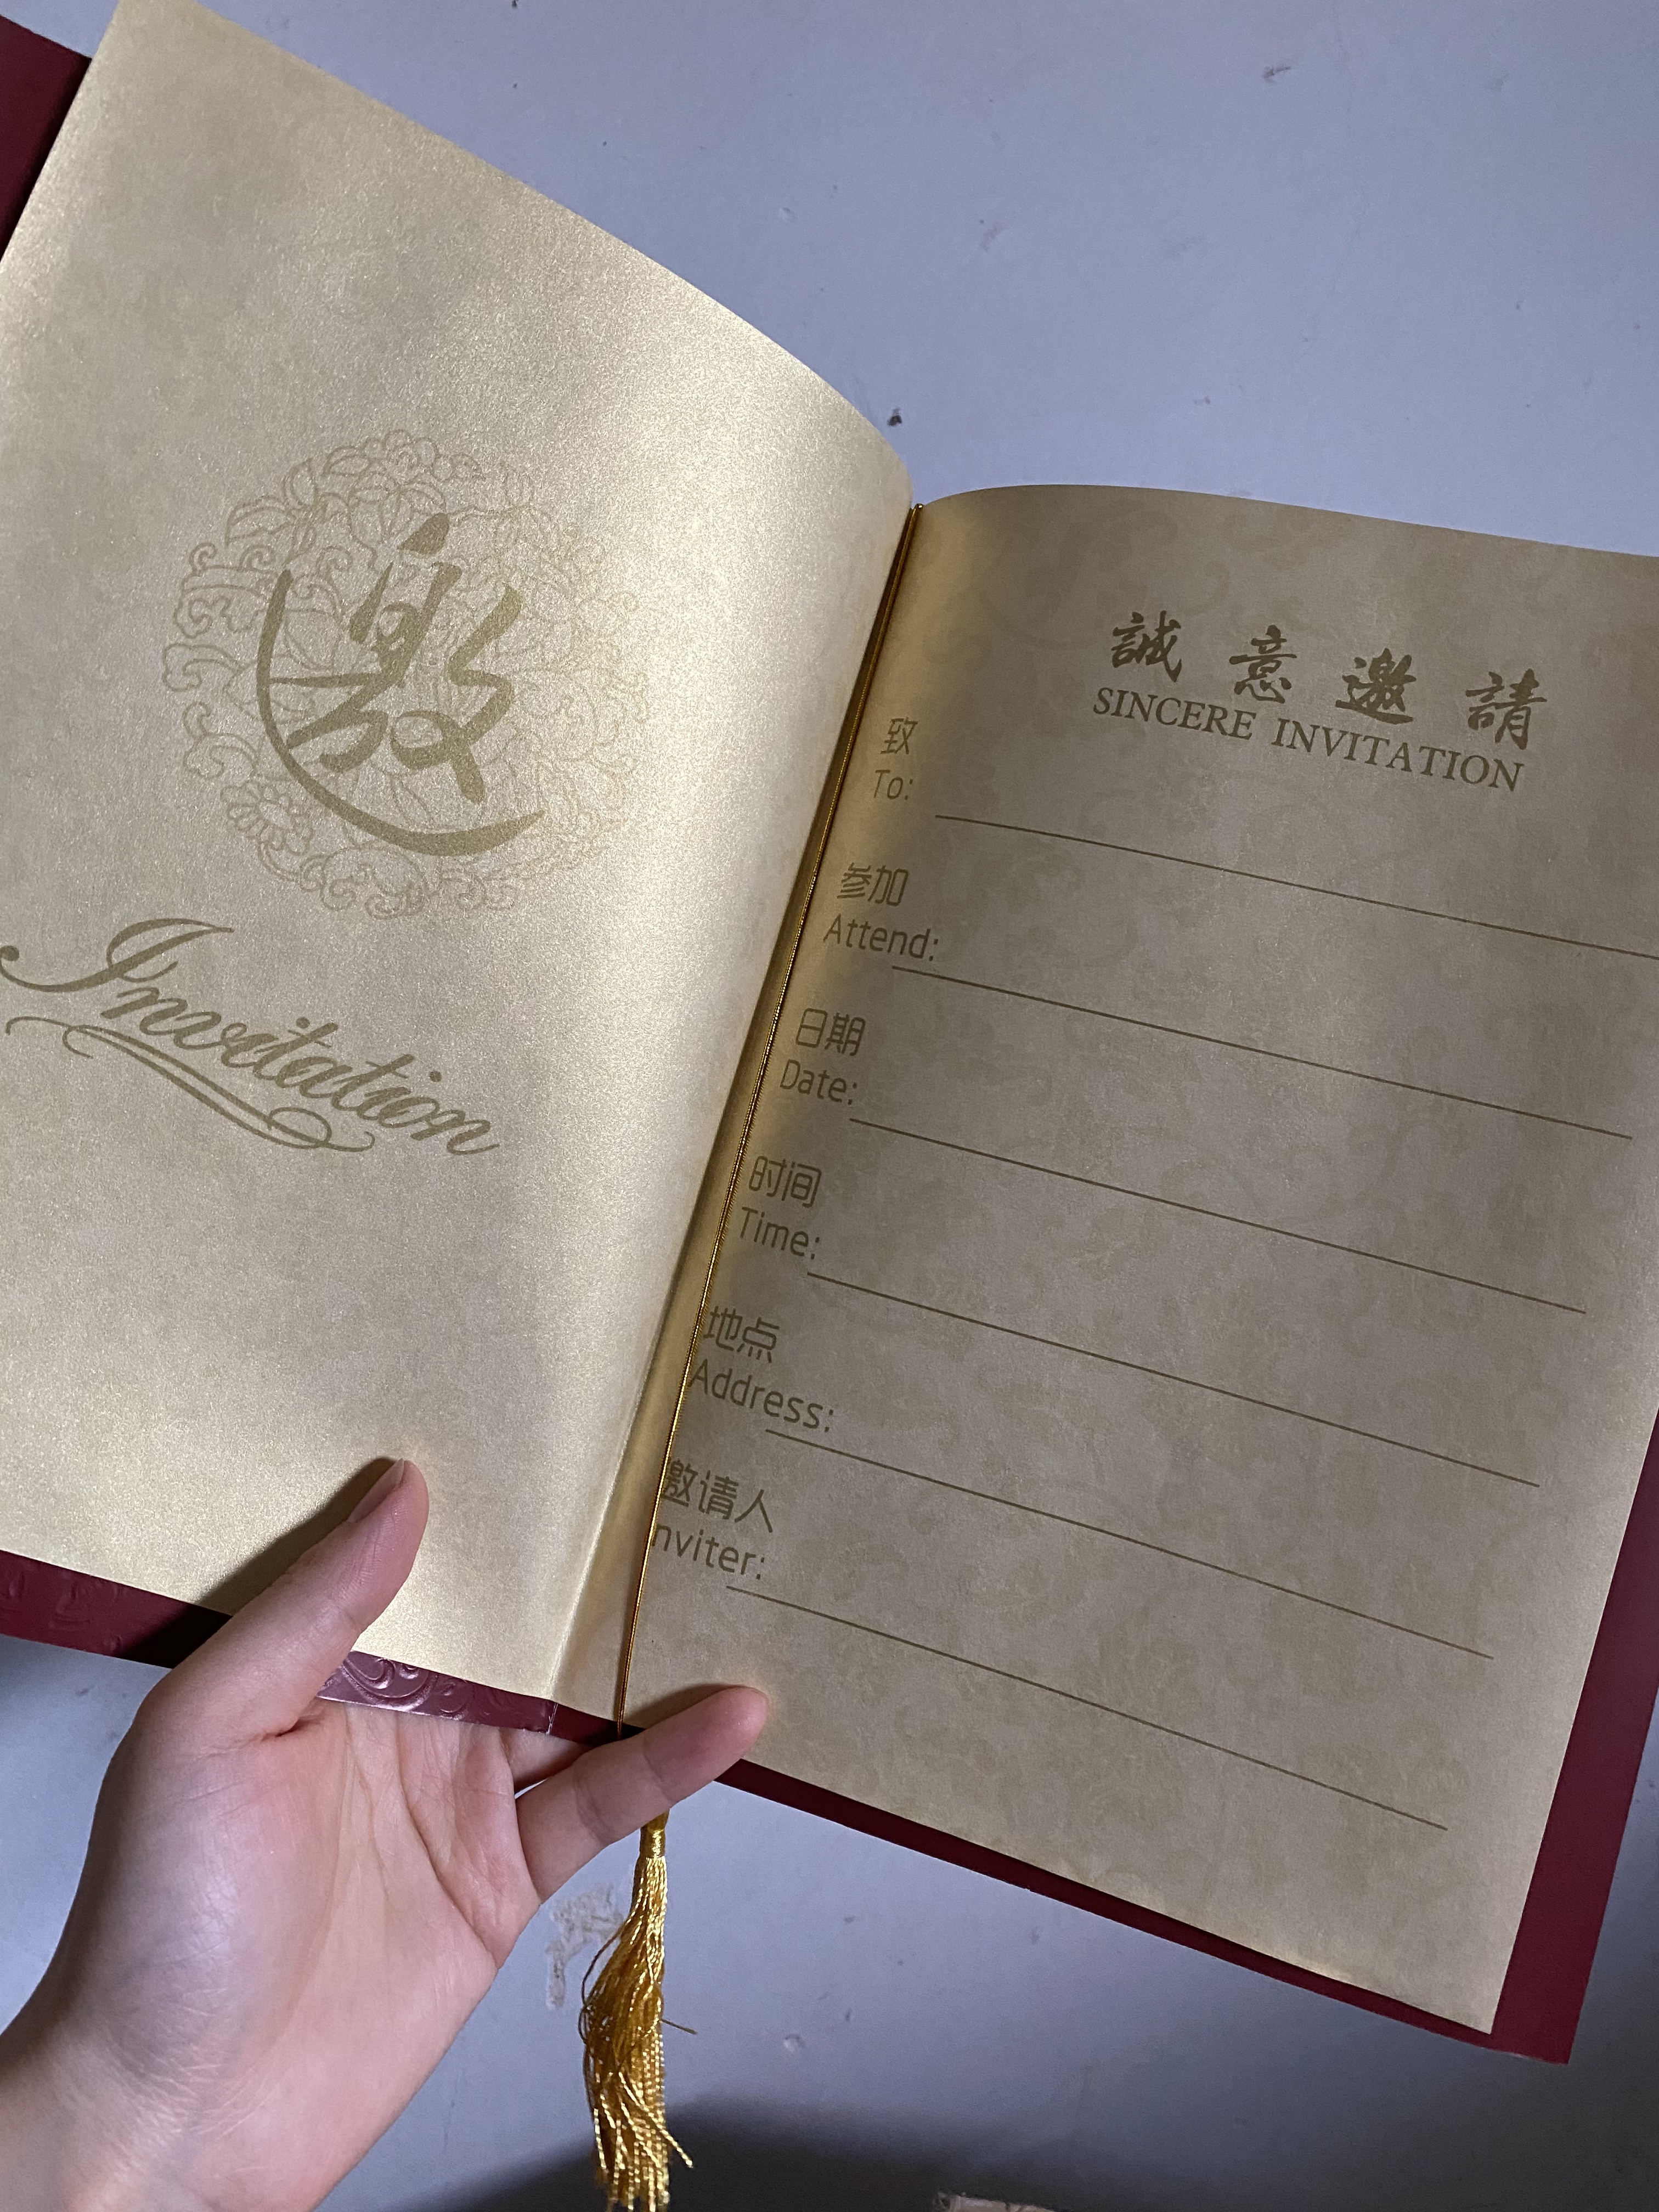 邀
Invitation
誠意邀請
SINCERE INVITATION
致
To:
参加
Attend:
日期
Date:
时间
Time:
地点
Address:
邀请人
Inviter: